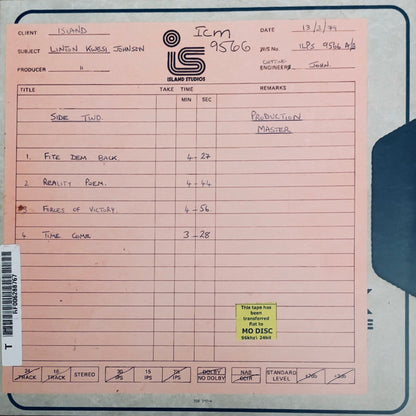 CLIENT ISLAND
SUBJECT LINTON KWESI JOHNSON
PRODUCER "
is
ISLAND STUDIOS
ICM
9566
DATE 13/3/79
W/S No. ILPS 9566 A/B
CUTTING
ENGINEERS JOHN.
TITLE TAKE TIME REMARKS
MIN SEC
SIDE TWO. PRODUCTION
MASTER
1. FITE DEM BACK. 4-27
2. REALITY POEM. 4-44
3 FORCES OF VICTORY. 4-56
4 TIME COME 3-28
T
RF006288767
This tape has
been
transferred
flat to
MO DISC
96khz\24bit
24 TRACK
16 TRACK
STEREO
30 IPS
15 IPS
DOLBY
NO DOLBY
NAB
CCIR
STANDARD
LEVEL